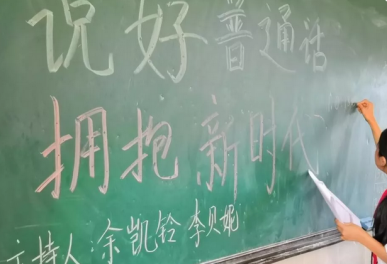 说好普通话
拥抱新时代
主持人:余凯铃 李贝妮